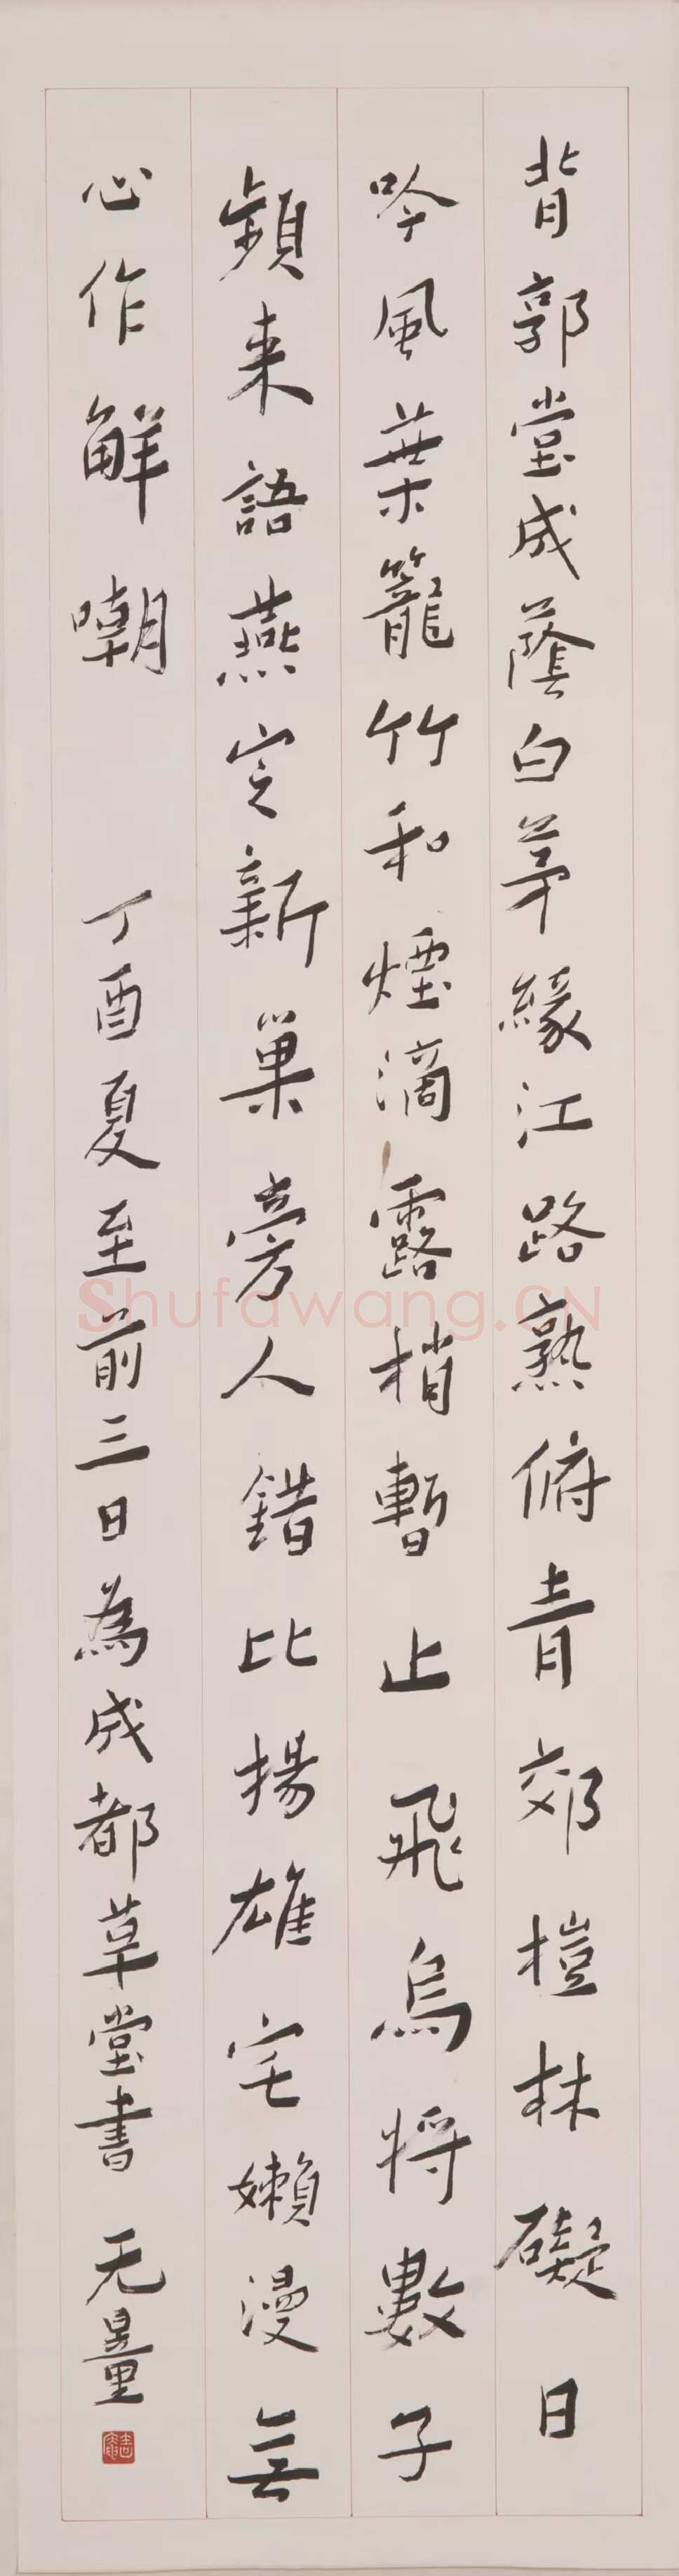 背郭堂成蔭白茅緣江路熟俯青郊榿林礙日
吟風葉籠竹和煙滴露梢暫止飛烏將數子
頻来語燕定新巢旁人錯比揚雄宅嬾漫無
心作解嘲
丁酉夏至前三日為成都草堂書 无量
Shufawang.CN